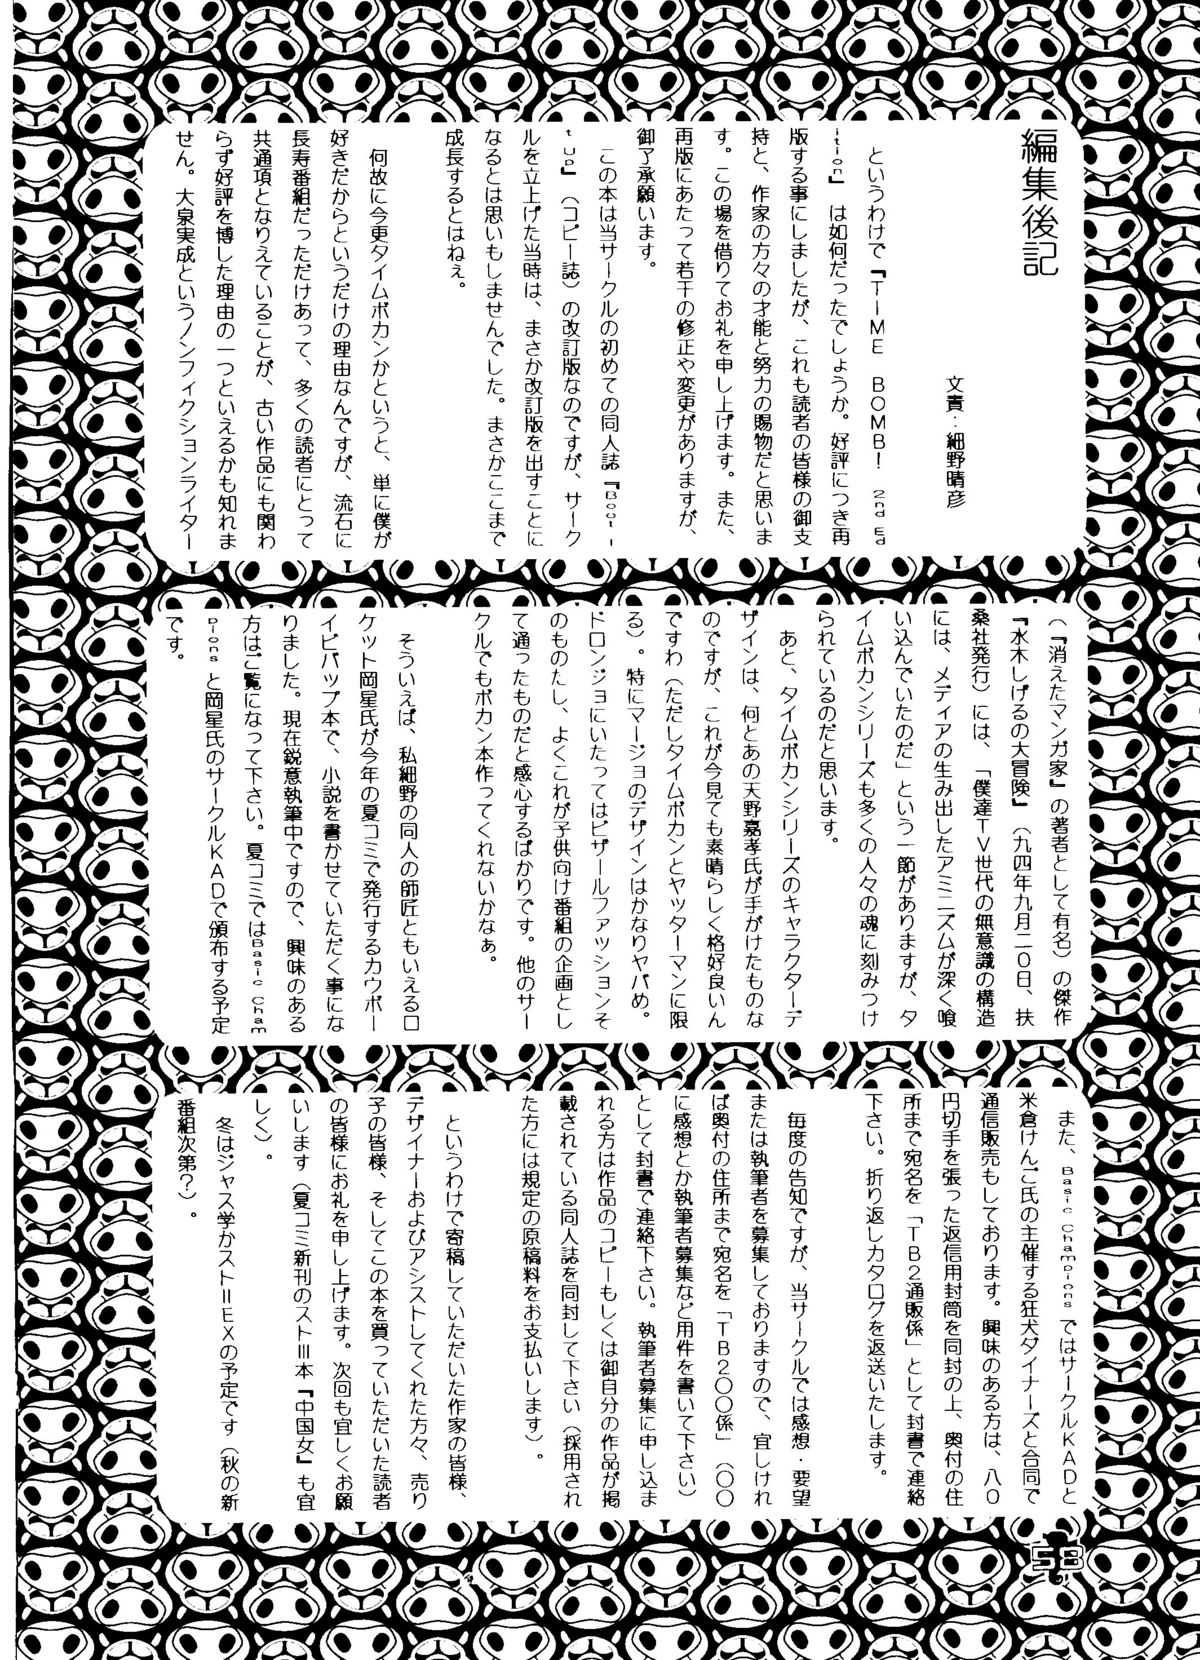 編集後記
文責：細野晴彦
というわけで『TIME BOMB! 2nd Ed
ition』は如何だったでしょうか。好評につき再
版する事にしましたが、これも読者の皆様の御支
持と、作家の方々の才能と努力の賜物だと思いま
す。この場を借りてお礼を申し上げます。また、
再版にあたって若干の修正や変更がありますが、
御了承願います。
この本は当サークルの初めての同人誌『Boot-
tup』（コピー誌）の改訂版なのですが、サーク
ルを立上げた当時は、まさか改訂版を出すことに
なるとは思いもしませんでした。まさかここまで
成長するとはねぇ。
何故に今更タイムボカンかというと、単に僕が
好きだからというだけの理由なんですが、流石に
長寿番組だっただけあって、多くの読者にとって
共通項となりえていることが、古い作品にも関わ
らず好評を博した理由の一つといえるかも知れま
せん。大泉実成というノンフィクションライター
（『消えたマンガ家』の著者として有名）の傑作
『水木しげるの大冒険』（九四年九月二〇日、扶
桑社発行）には、「僕達TV世代の無意識の構造
には、メディアの生み出したアミニズムが深く喰
い込んでいたのだ」という一節がありますが、タ
イムボカンシリーズも多くの人々の魂に刻みつけ
られているのだと思います。
あと、タイムボカンシリーズのキャラクターデ
ザインは、何とあの天野嘉孝氏が手がけたものな
のですが、これが今見ても素晴らしく格好良いん
ですわ（ただしタイムボカンとヤッターマンに限
る）。特にマージョのデザインはかなりヤバめ。
ドロンジョにいたってはビザールファッションそ
のものだし、よくこれが子供向け番組の企画とし
て通ったものだと感心するばかりです。他のサー
クルでもボカン本作ってくれないかなぁ。
そういえば、私細野の同人の師匠ともいえるロ
ケット岡星氏が今年の夏コミで発行するカウボー
イビバップ本で、小説を書かせていただく事にな
りました。現在鋭意執筆中ですので、興味のある
方はご覧になって下さい。夏コミではBasic Cham
pionsと岡星氏のサークルKADで頒布する予定
です。
また、Basic ChampionsではサークルKADと
米倉けんご氏の主催する狂犬ダイナーズと合同で
通信販売もしております。興味のある方は、八〇
円切手を張った返信用封筒を同封の上、奥付の住
所まで宛名を「TB2通販係」として封書で連絡
下さい。折り返しカタログを返送いたします。
毎度の告知ですが、当サークルでは感想・要望
または執筆者を募集しておりますので、宜しけれ
ば奥付の住所まで宛名を「TB2〇〇係」（〇〇
に感想とか執筆者募集など用件を書いて下さい）
として封書で連絡下さい。執筆者募集に申し込ま
れる方は作品のコピーもしくは御自分の作品が掲
載されている同人誌を同封して下さい（採用され
た方には規定の原稿料をお支払いします）。
というわけで寄稿していただいた作家の皆様、
デザイナーおよびアシストしてくれた方々、売り
子の皆様、そしてこの本を買っていただいた読者
の皆様にお礼を申し上げます。次回も宜しくお願
いします（夏コミ新刊のストIII本『中国女』も宜
しく）。
冬はジャス学かストIIEXの予定です（秋の新
番組次第？）。
53